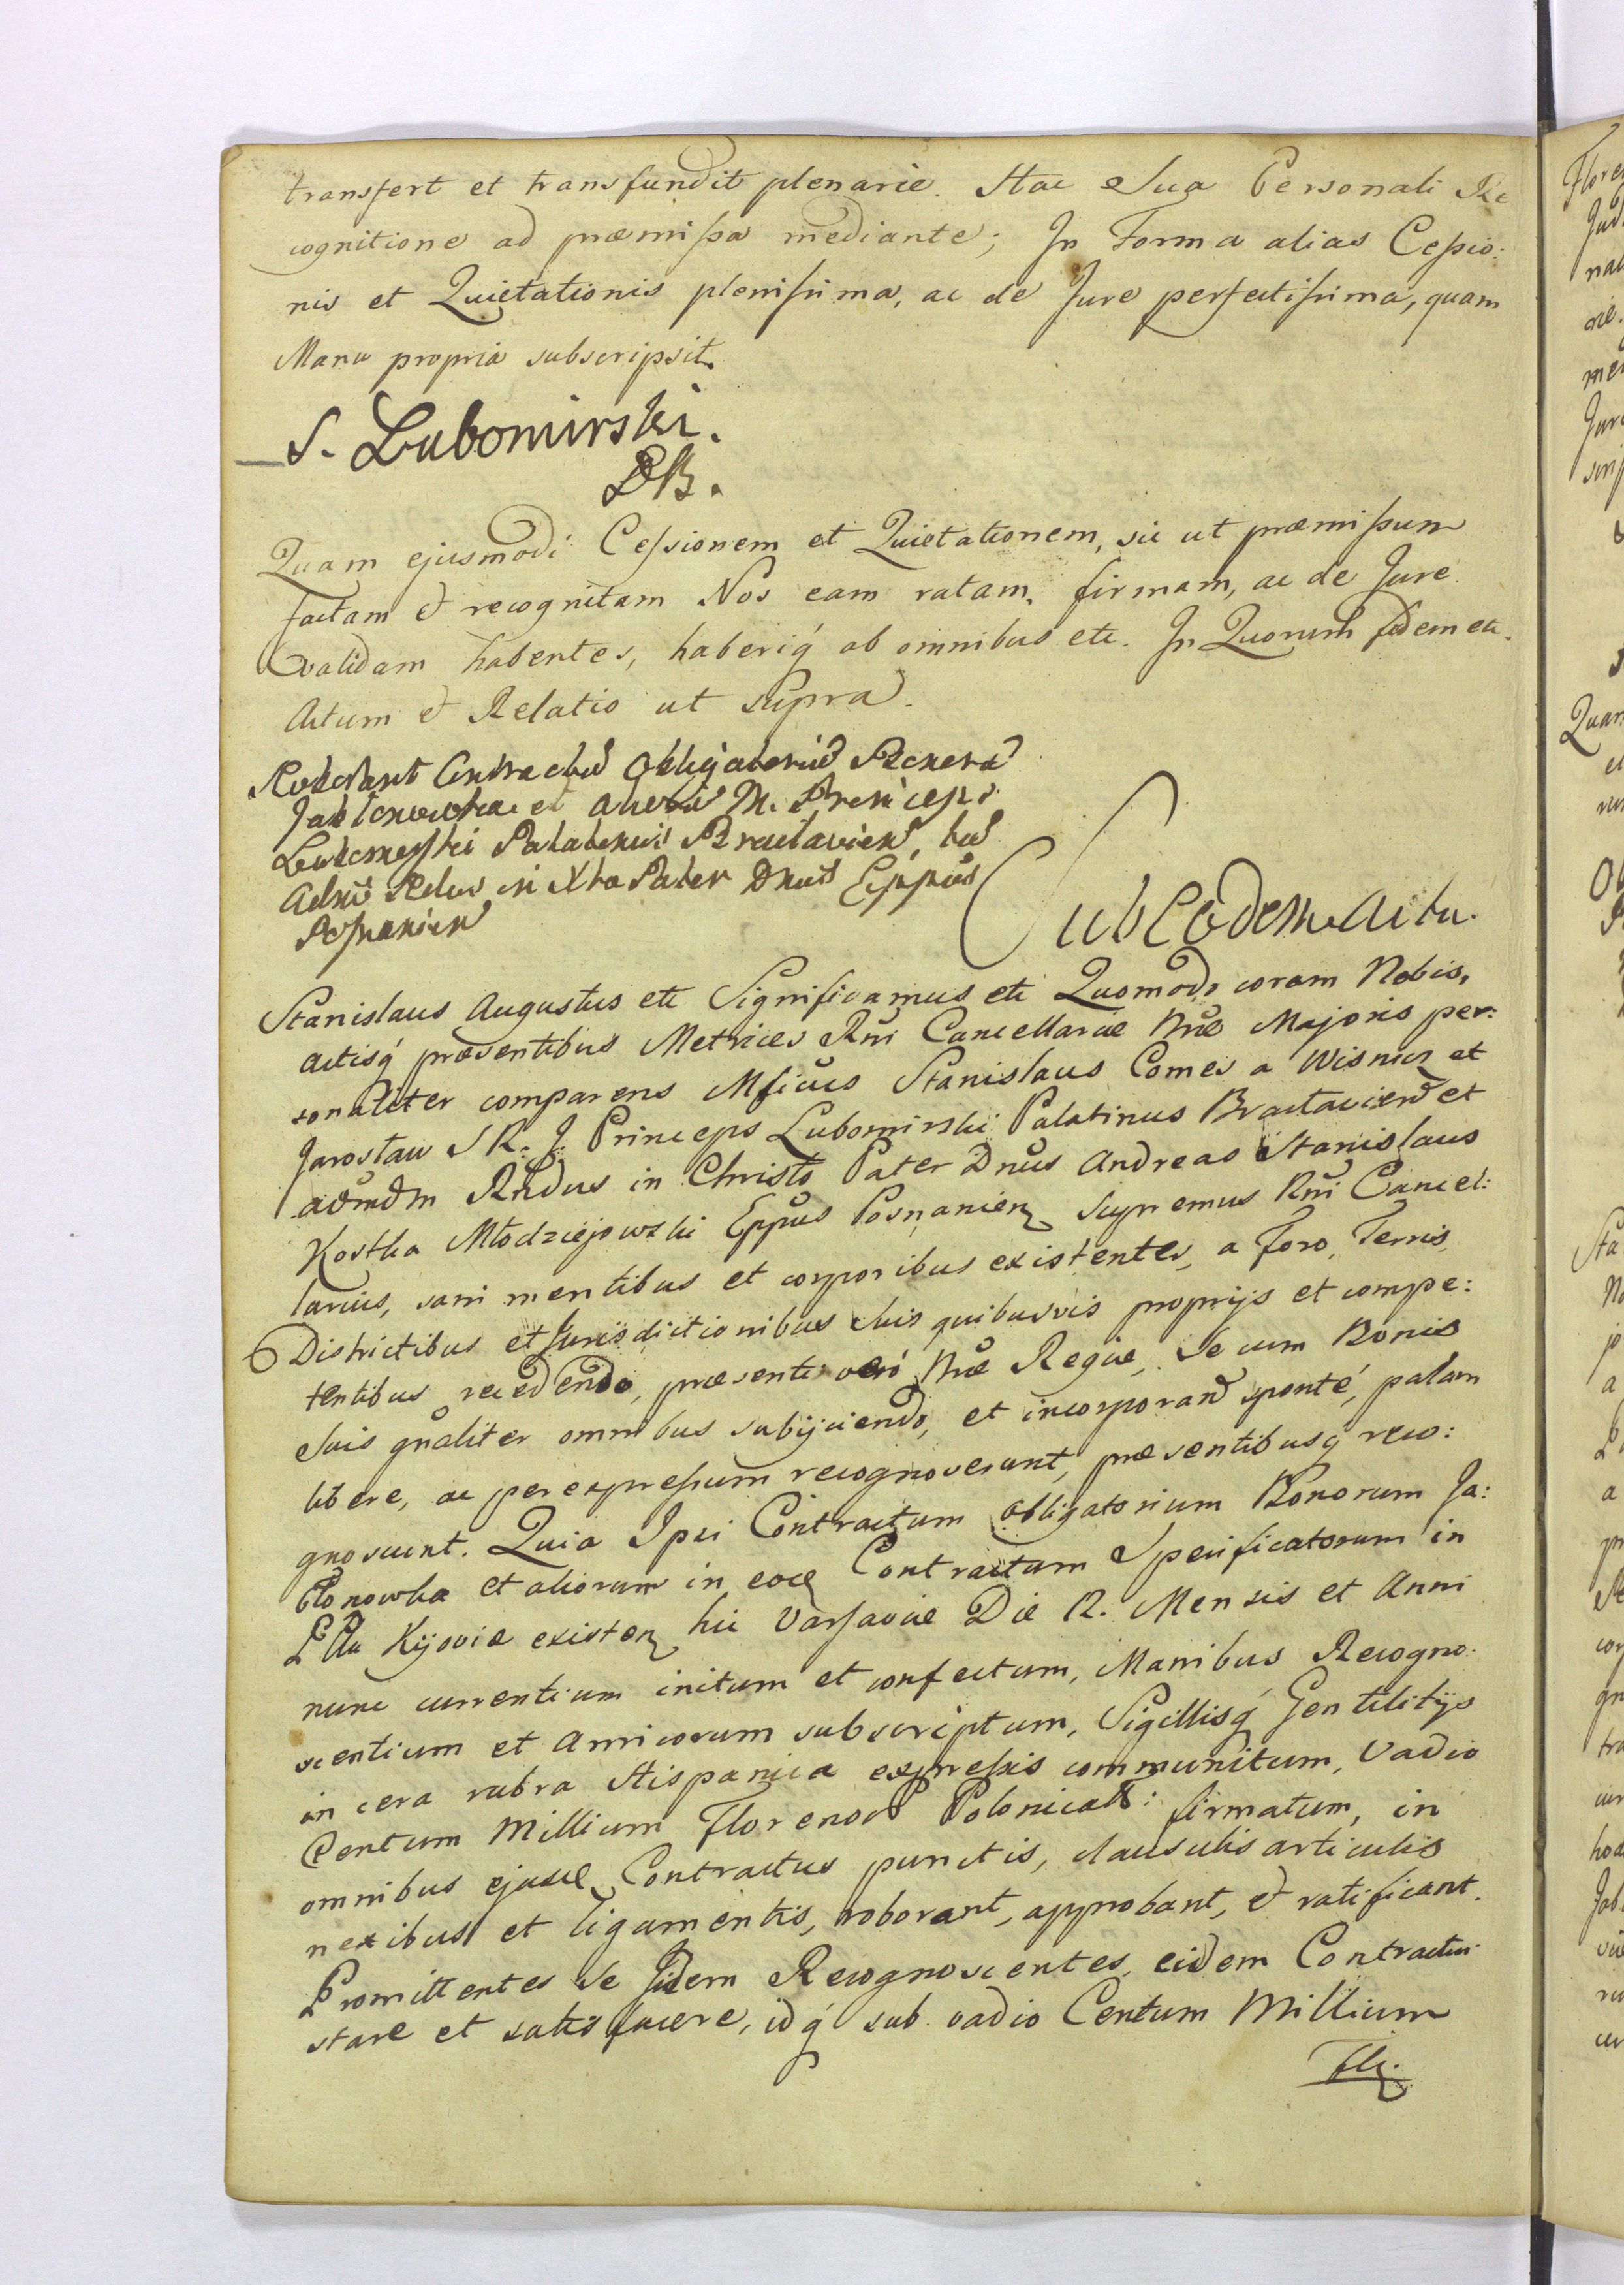 transfert et transfundit plenarie. Hac Sua Personali Re
cognitione ad præmissa mediante; In Forma alias Cessio:
nis et Quietationis plenissima, ac de Jure perfectissima, quam
Manu propria subscripsit.
S. Lubomirski.
Quam ejusmodi Cessionem et Quietationem, sic ut præmissum
factam et recognitam Nos eam ratam, firmam, ac de Jure
validam habentes, haberiq́ ab omnibus etc. In Quorum fidem etc.
Actum et Relatio ut supra.
Roborant Contractum Obligatorium Bonorum
Jablonowka et aliorum M. Princeps
Lubomirski Palatinus Braclavien, tum
Admm Rdus in Xto Pater Dnus Eppus
Posnanien
Sub Eodem Actu.
Stanislaus Augustus etc Significamus etc Quomodo coram Nobis,
actisq́ præsentibus Metrices Rñi Cancellariæ Nræ Majoris per:
sonaliter comparens Mficus Stanislaus Comes a Wisnicz et
Jaroslaw S R. J. Princeps Lubomirski Palatinus Bractavien et
admdm Rndus in Christo Pater Dnus Andreas Stanislaus
Kostka Młodziejowski Eppus Posnanien Supremus Rñi Cancel:
larius, sani mentibus et corporibus existentes, a Foro, Terris,
Districtibus et Jurisdictionibus Suis quibusvis proprijs et compe:
tentibus recedendo, præsenti veró Nræ Regiæ, Se cum Bonis
Suis gnaliter omnibus subijciendo, et incorporand sponté, palam
libere, ac per expressum recognoverunt, præsentibusq́ reco:
gnoscunt. Quia Ipsi Contractum obligatorium Bonorum Ja:
blonowka et aliorum in eoce Contractum Specificatorum in
Pttu Kijoviæ existen hic Varsaviæ Die 12. Mensis et Anni
nunc currentium initum et confectum, Manibus Recogno:
scentium et Amicorum subscriptum, Sigillisq́ Gentilitijs
in cera rubra Hispanica expressis communitum, Vadio
Centum Millium Florenor Polonical: firmatum, in
omnibus ejusce Contractus punctis, clausulis articulis
nexibus et ligamentis, roborant, approbant, et ratificant.
Promittentes Se Jidem Recognoscentes, eidem Contractui
stare et satisfacere, idq́ sub vadio Centum Millium
Flr.